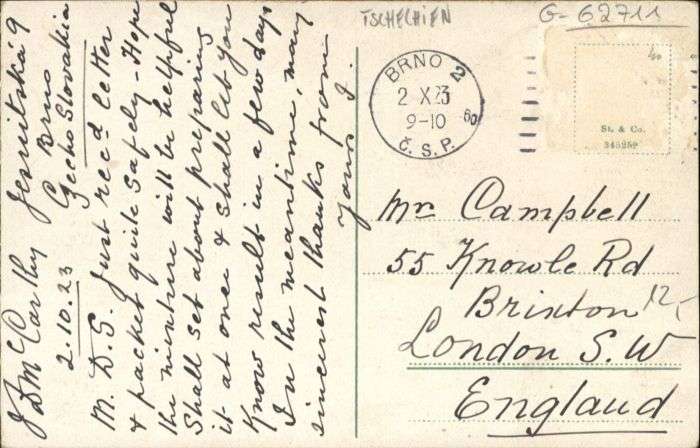 TSCHECHIEN
G-62711
BRNO 2
2 X 23
9-10
Č.S.P.
St. & Co.
345259
J D McCarthy Jesuitská 9
Brno
2.10.23 Czecho Slovakia
M. D. S. Just rec^d letter
& packet quite safely - Hope
the mixture will be helpful
Shall set about preparing
it at once & shall let you
Know result in a few days
In the meantime, many
sincerest thanks from
Yours J.
Mr Campbell
55 Knowle Rd
Brixton
12,-
London S.W
England